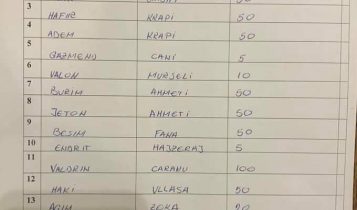 3 HAFUZ KRAPI 50
4 ADEM KRAPI 50
5 GAZMEND CANI 5
6 VALON MURSELI 10
7 BURIM AHMETI 50
8 JETON AHMETI 50
9 BESIM FANA 50
10 ENDRIT HAJZERAJ 5
11 VALDRIN CARANU 100
12 HAKI ULLASA 50
13 AGIM ZEKA